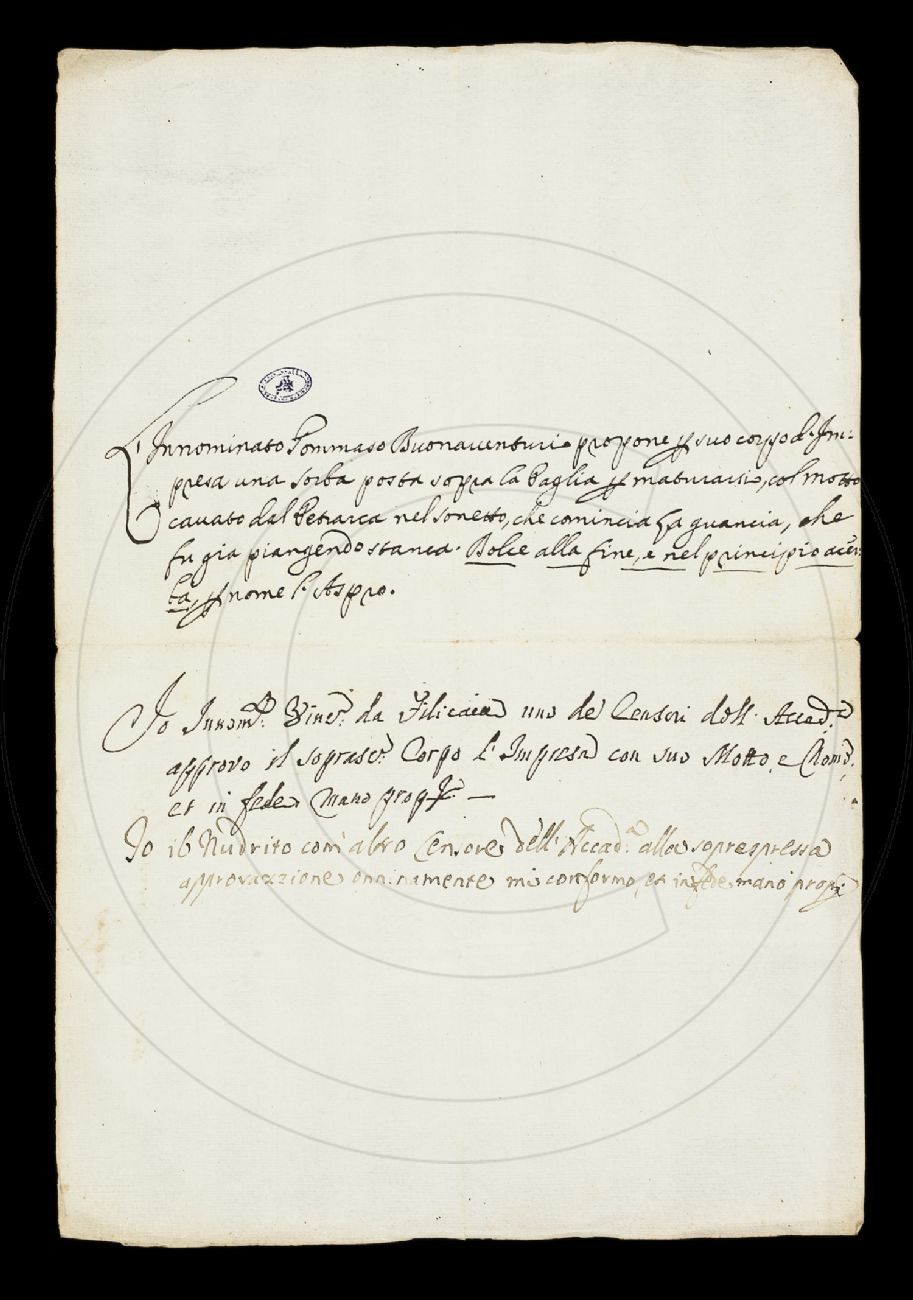 L'Innominato Tommaso Buonaventuri propone p suo corpo d'Im:
presa una sorba posta sopra la Paglia p maturarsi, col motto
cavato dal Petrarca nel sonetto, che comincia La guancia, che
fu gia piangendo stanca. Dolce alla fine, e nel principio acer:
ba, p nome l'Aspro.
Io Innom.to Vinc.o da Filicaia uno de Censori dell' Accad.a
approvo il soprasc.o Corpo d'Impresa con suo Motto, e Nome,
et in fede mano prop.a —
Io il Nudrito com' altro Censore dell' Accad.a alla sopraespressa
approvazzione onninamente mi conformo, et in fede mano prop.a